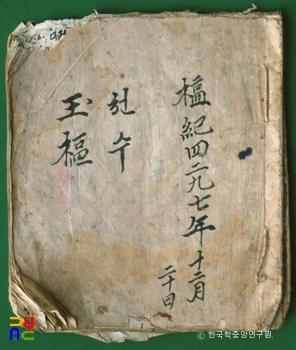 檀紀四二九七年十二月
二十日
천수
玉樞
© 한국학중앙연구원.